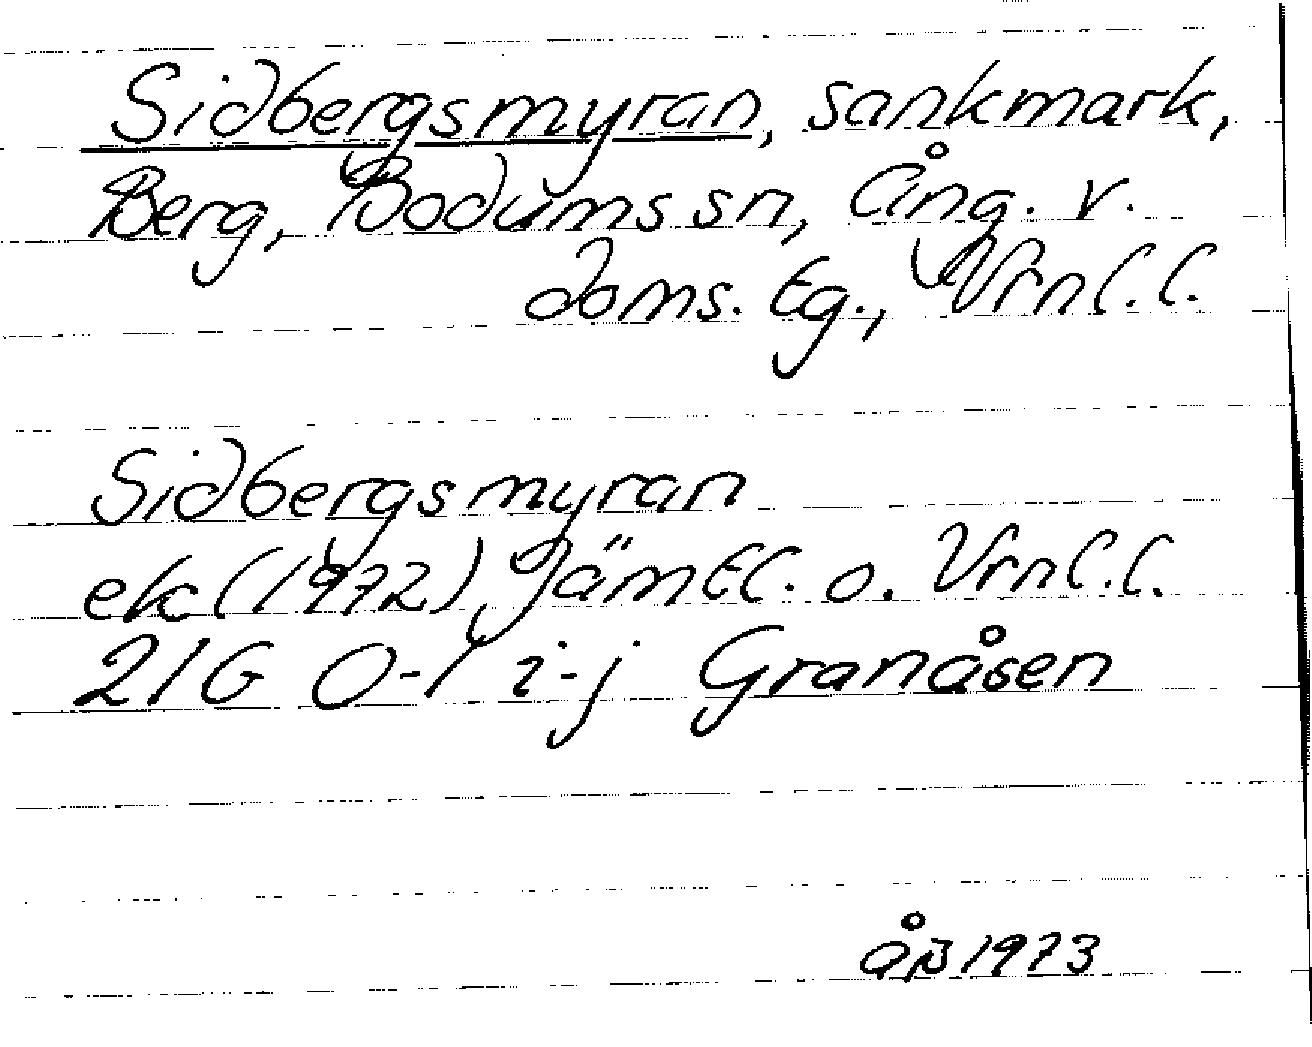 Sidbergsmyran, sankmark,
Berg, Bodums sn, Ång. v.
doms. tg., Vrnl.l.
Sidbergsmyran
ek (1972) Jämtl. o. Vrnl.l.
21G 0-1 i-j Granåsen
åB 1973